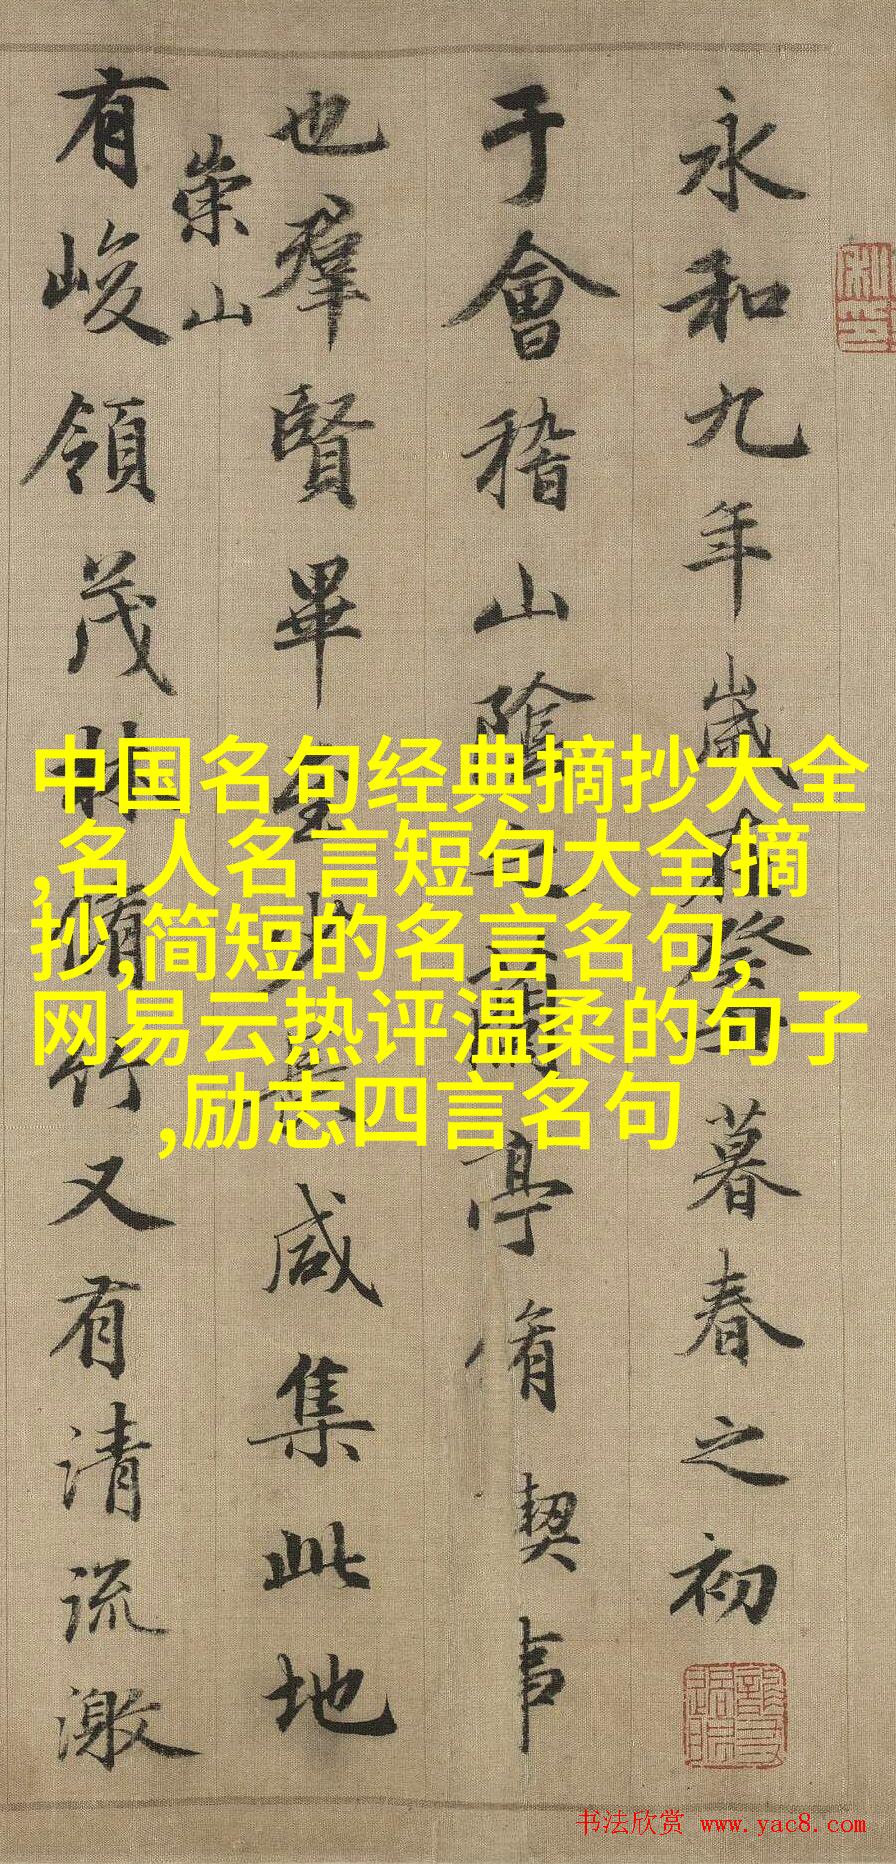 永和九年歲在癸丑暮春之初
于會稽山陰之蘭亭脩契事
也羣賢畢至少長咸集此地
崇山
有峻領茂林脩竹又有清流激
中国名句经典摘抄大全
,名人名言短句大全摘
抄,简短的名言名句,
网易云热评温柔的句子
,励志四言名句
书法欣赏 www.yac8.com